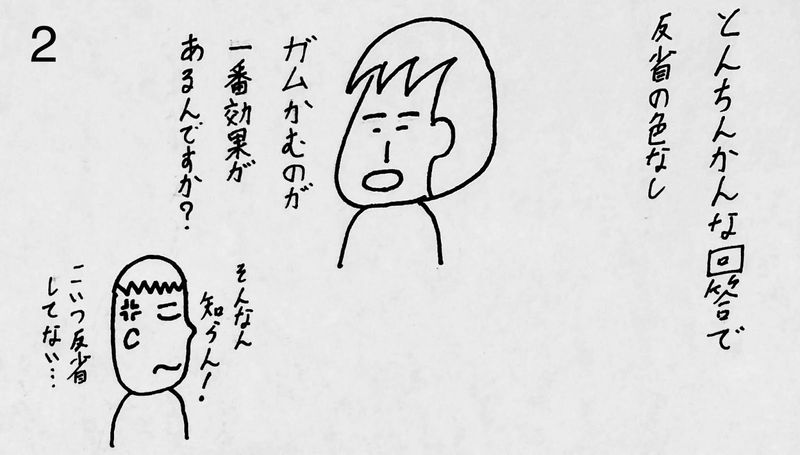 2
とんちんかんな回答で
反省の色なし
ガムかむのが
一番効果が
あるんですか?
そんなん
知らん!
こいつ反省
してない…